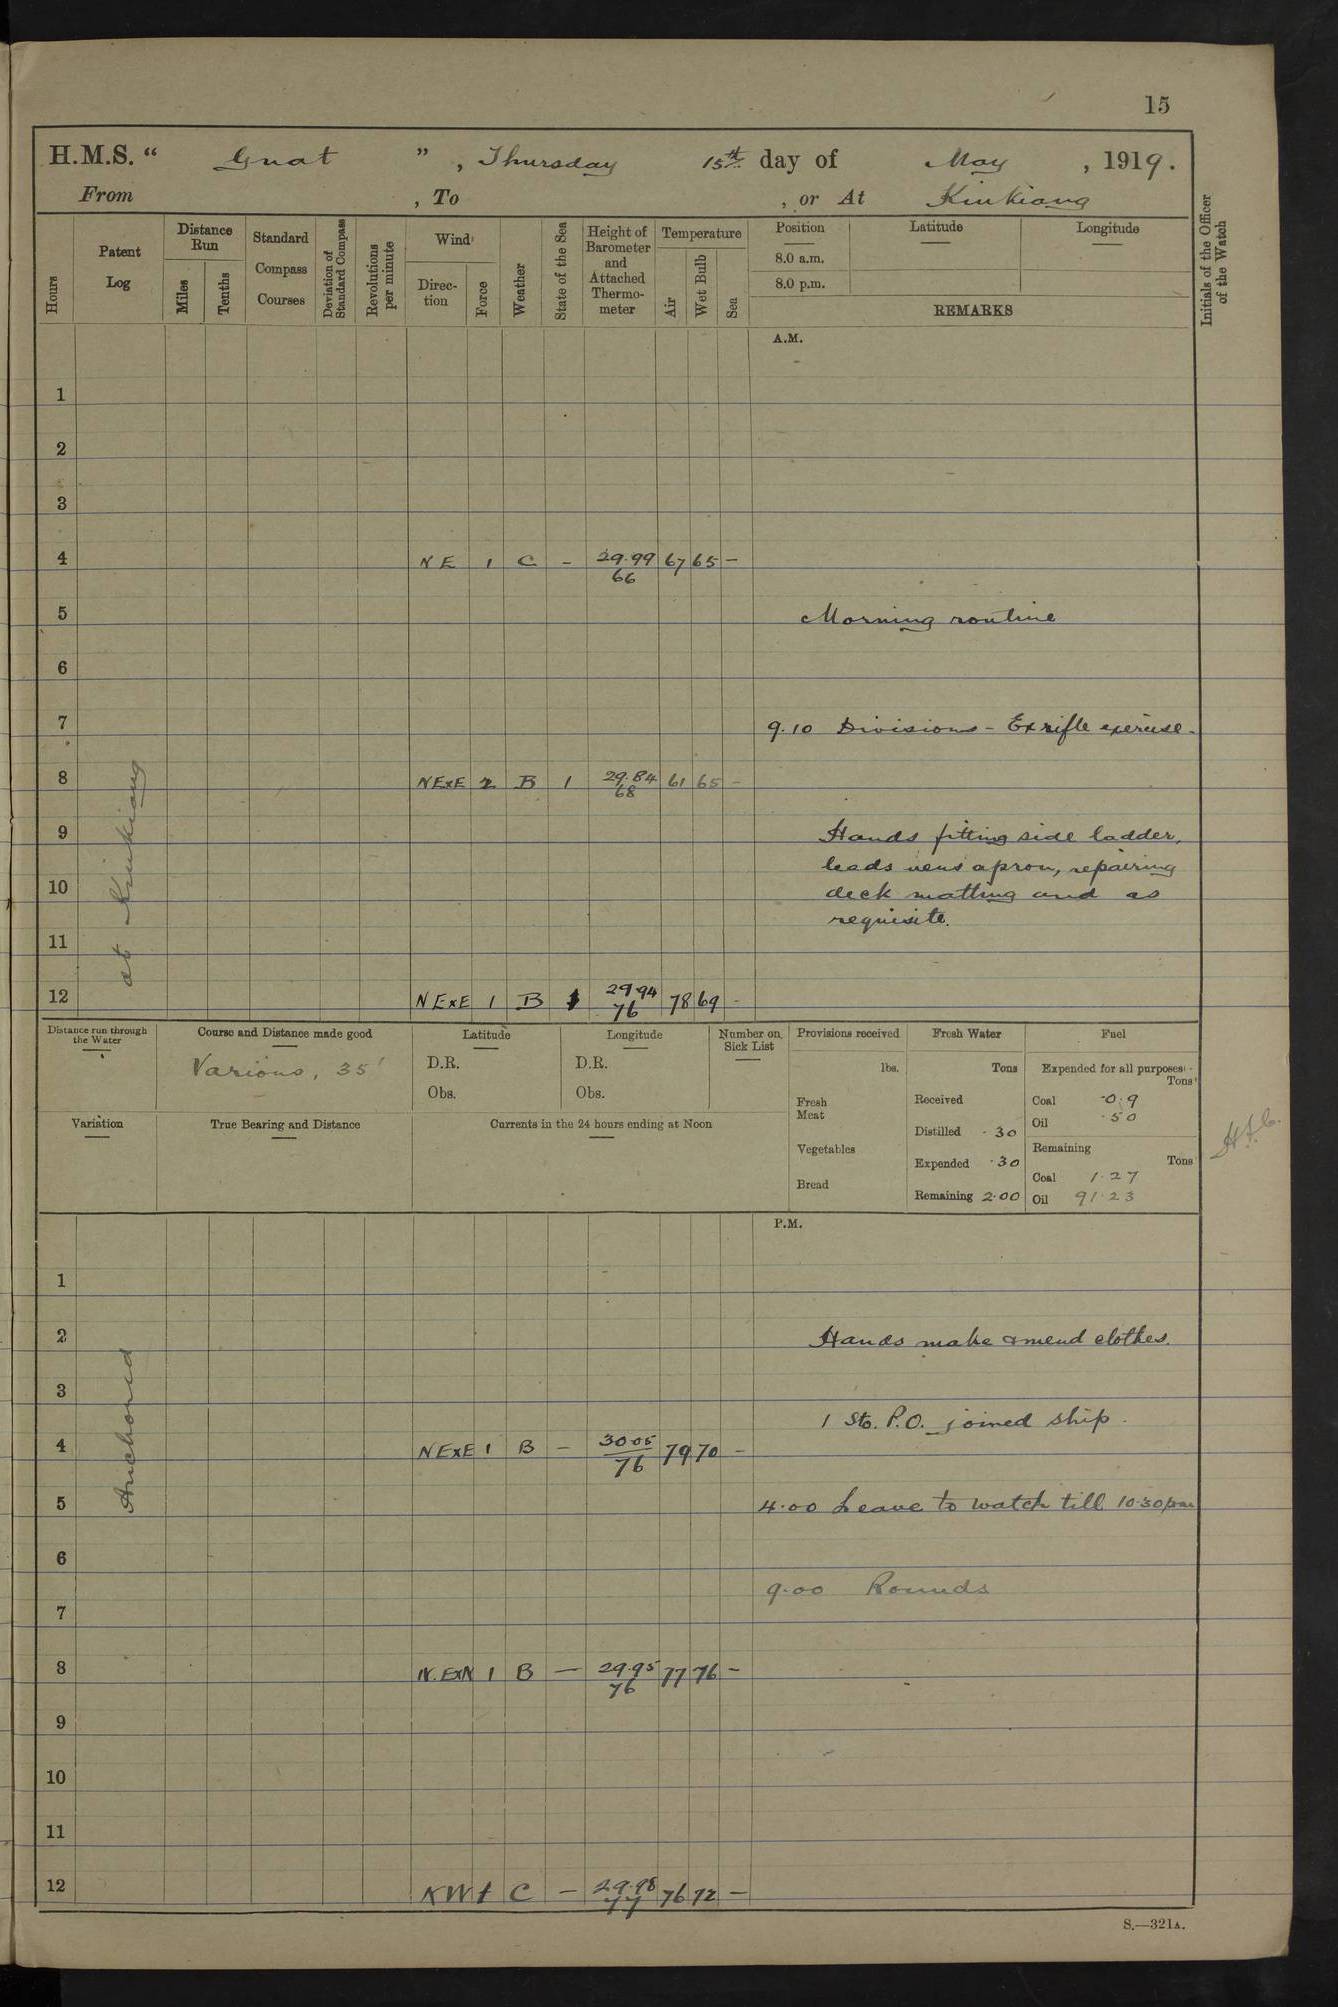 15
H.M.S. “ Gnat ” , Thursday 15th day of May , 1919.
From , To , or At Kiukiang
Hours
Patent Log
Distance Run
Miles
Tenths
Standard Compass Courses
Deviation of Standard Compass
Revolutions per minute
Wind
Direction
Force
Weather
State of the Sea
Height of Barometer and Attached Thermometer
Temperature
Air
Wet Bulb
Sea
Position
Latitude
Longitude
8.0 a.m.
8.0 p.m.
REMARKS
Initials of the Officer of the Watch
A.M.
1
2
3
4 NE 1 C - 29.99 67 65 -
66
5 Morning routine
6
7 9.10 Divisions - Ex rifle exercise.
8 NExE 2 B 1 29.84 61 65 -
68
at Kiukiang
9 Hands fitting side ladder,
leads apron, repairing
10 deck matting and as
requisite.
11
12 NExE 1 B 1 29.94 78 69 -
76
Distance run through the Water
Course and Distance made good
Various, 35'
Latitude
D.R.
Obs.
Longitude
D.R.
Obs.
Number on Sick List
Provisions received
lbs.
Fresh Meat
Vegetables
Bread
Fresh Water
Tons
Received
Distilled .30
Expended .30
Remaining 2.00
Fuel
Expended for all purposes
Tons
Coal 0.9
Oil .50
Remaining
Tons
Coal 1.27
Oil 91.23
Variation
True Bearing and Distance
Currents in the 24 hours ending at Noon
P.M.
1
2 Hands make & mend clothes.
3
1 Sto. P.O. joined ship.
4 NExE 1 B - 30.05 79 70 -
76
Anchored
5 4.00 Leave to watch till 10.30pm
6
9.00 Rounds
7
8 N.ExN 1 B - 29.95 77 76 -
76
9
10
11
12 NW 1 C - 29.98 76 72 -
77
S.—321A.